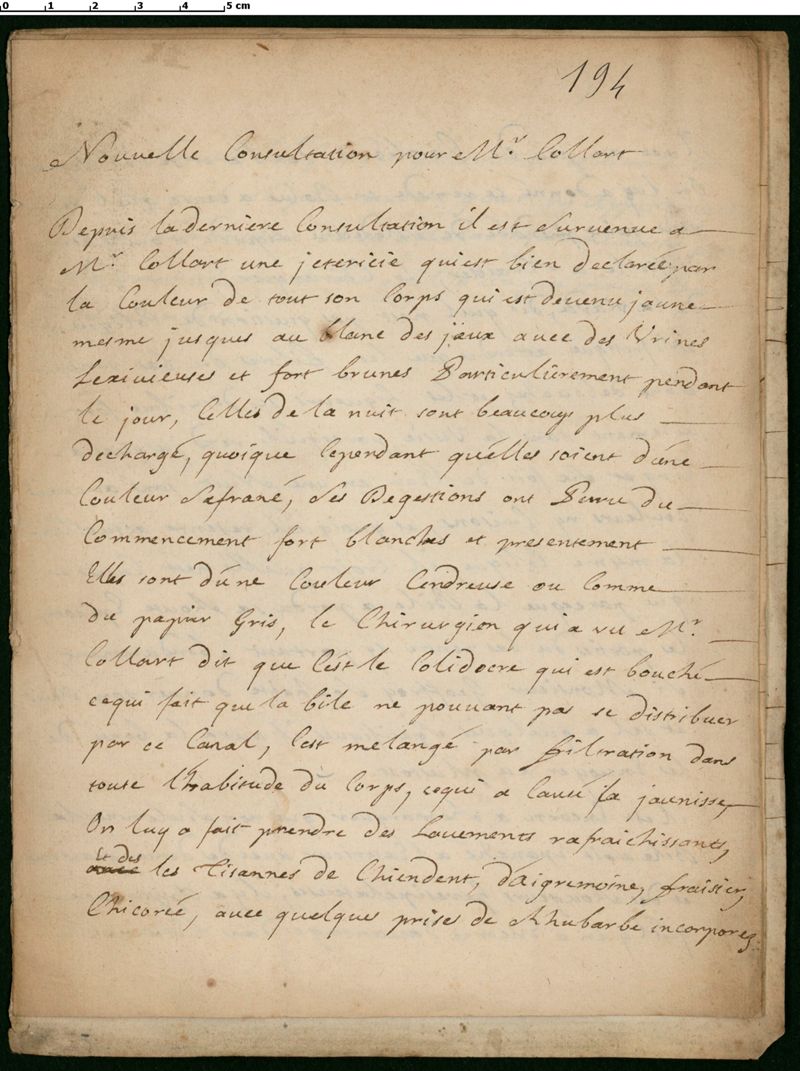 0 1 2 3 4 5 cm
194
Nouvelle Consultation pour Mr. Collart
Depuis la derniere Consultation il est Survenue a
Mr. Collart une jctericie qui est bien declareé par
la Couleur de tout son Corps qui est devenu jaune
mesme jusques au blanc des jëux avec des Vrines
Lexivieuses et fort brunes Particulièrement pendant
le jour, Celles de la nuit sont beaucoup plus
dechargé, quoique Cependant quélles soient dúne
Couleur Safrané, Ses Degestions ont Paru du
Commencement fort blanches et presentement
Elles sont dúne Couleur Cendreuse ou Comme
du papier Gris, le Chirurgien qui a vu Mr.
Collart dit que Cést le Colidocre qui est bouché
cequi fait que la bile ne pouvant pas se distribuer
par ce Canal, Cest melangé par filtration dans
toute l'habitude du Corps, cequi a Causé sa jaunisse,
On luy a fait prendre des Lavements rafraichissants,
Et des
avec les Tisannes de Chiendent, dáigremoine, fraisier,
Chicoreé, avec quelques prises de Rhubarbe incorporez